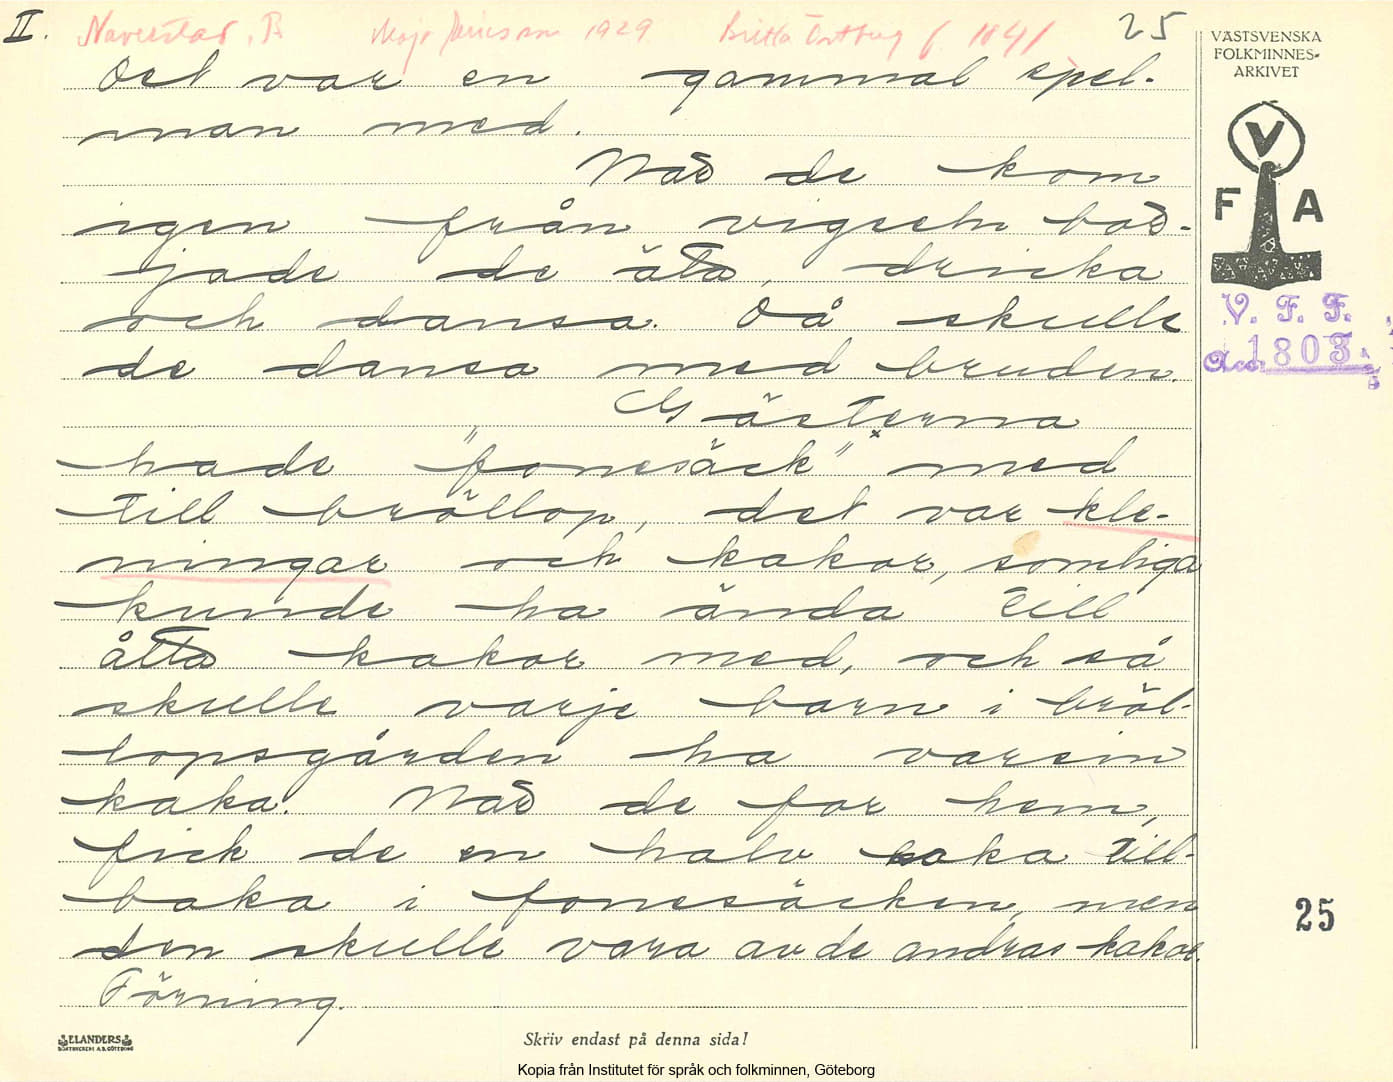 II. Naverstad, B Maja Ericson 1929 Britta Östberg f 1841 25
VÄSTSVENSKA
FOLKMINNES-
ARKIVET
V
F A
V. F. F.
Acc. 1803.
Det var en gammal spel-
man med.
När de kom
igen från vigseln bör-
jade de äta, dricka
och dansa. Då skulle
de dansa med bruden.
Gästerna
hade "fonesäck" x med
till bröllop, det var kle-
ningar och kakor, somliga
kunde ha ända till
åtta kakor med, och så
skulle varje barn i bröl-
lopsgården ha varsin
kaka. När de for hem,
fick de en halv kaka till-
baka i fonesäcken, men
den skulle vara av de andras kakor.
Förning.
25
ELANDERS
BOKTRYCKERI A.B. GÖTEBORG
Skriv endast på denna sida!
Kopia från Institutet för språk och folkminnen, Göteborg